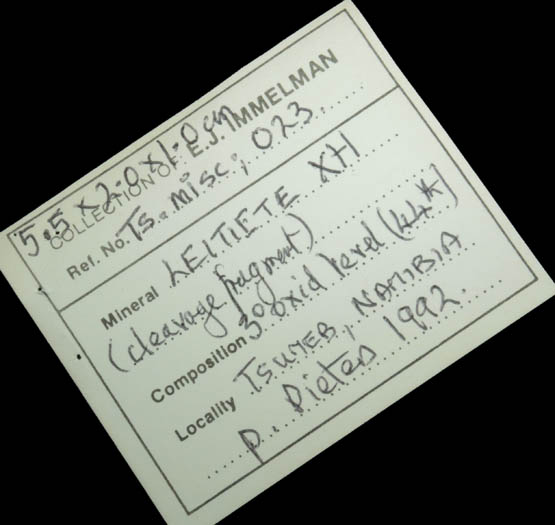 5.5 x 2.0 x 1.0 cm
COLLECTION OF E.J. IMMELMAN
Ref. No. TS. misc; 023
Mineral LEITIETE XH
(cleavage fragment)
Composition 3° oxid level (44*)
Locality TSUMEB, NAMIBIA
P. Pieters 1992.